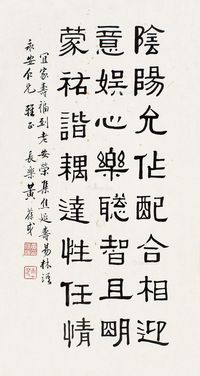 陰陽允佔配合相迎
意娛心樂聰智且明
蒙祐諧耦達性任情
宜家壽福到老安榮集焦延壽易林
永安仁兄雅正長樂黃葆戉